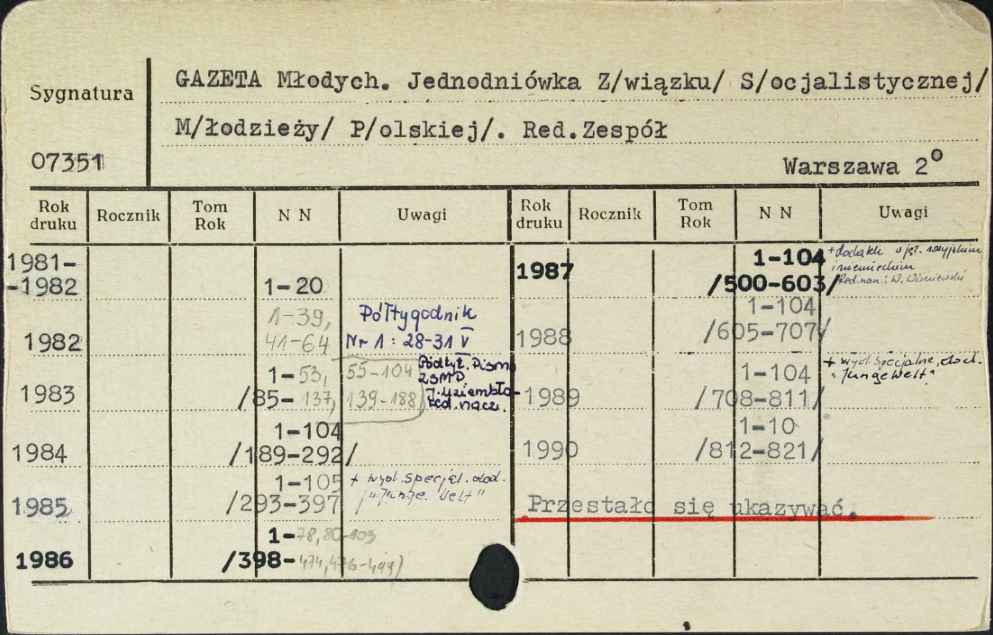 Sygnatura
07351
GAZETA Młodych. Jednodniówka Z/wiązku/ S/ocjalistycznej/
M/łodzieży/ P/olskiej/. Red.Zespół
Warszawa 2°
Rok druku Rocznik Tom Rok N N Uwagi
1981-
-1982 1-20
1982 1-39, 41-64 Półtygodnik
Nr 1: 28-31 V
1983 1-53, 55-104
/85-137, 139-188/ Podtyt. Pismo
ZSMP
red. nacz.
1984 1-104
/189-292/
1985 1-105 + wyd. specjal. dod.
/293-397 "Junge Welt"
1986 1-78,80-103
/398-474,476-499/
Rok druku Rocznik Tom Rok N N Uwagi
1987 1-104 + dodatki w jęz. rosyjskim
/500-603/ i niemieckim
Red. nan.: W. Wiśniewski
1988 1-104
/605-707/
1989 1-104 + wyd. specjalne, dod.
/708-811/ "Junge Welt"
1990 1-10
/812-821/
Przestało się ukazywać.